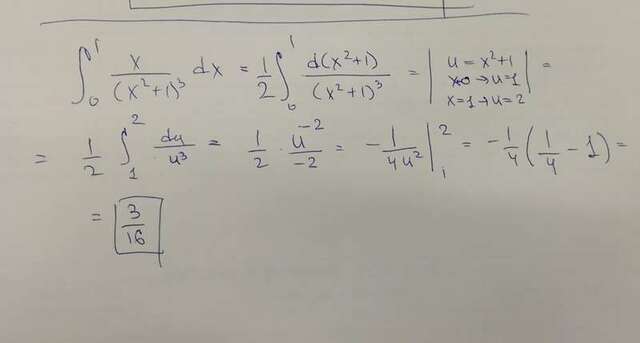 ∫₀¹ x/(x²+1)³ dx = 1/2 ∫₀¹ d(x²+1)/(x²+1)³ = | u = x²+1 x=0 → u=1 x=1 → u=2 | =
= 1/2 ∫₁² du/u³ = 1/2 · u⁻²/-2 = -1/4u² |₁² = -1/4 (1/4 - 1) =
= 3/16